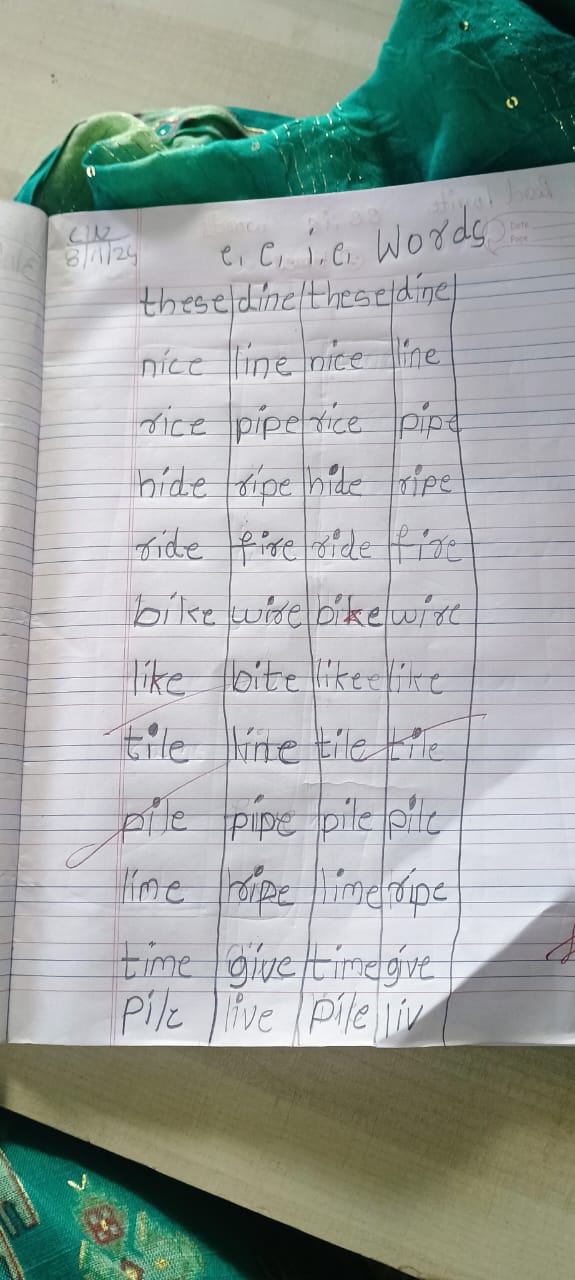 C/W
8/11/24
e, e, i, e, Words
these dine these dine
nice line nice line
rice pipe rice pipe
hide ripe hide ripe
ride fire ride fire
bike wire bike wire
like bite likee like
tile kite tile tile
pile pipe pile pile
lime ripe lime ripe
time give time give
Pile live Pile liv
Date
Page